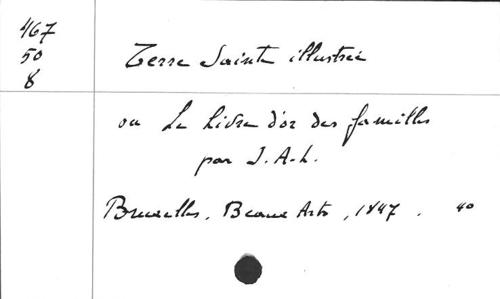 467
50
8
Terre Sainte illustrée
ou Le Livre d'or des familles
par J. A-L.
Bruxelles, Beaux Arts, 1847. 4o